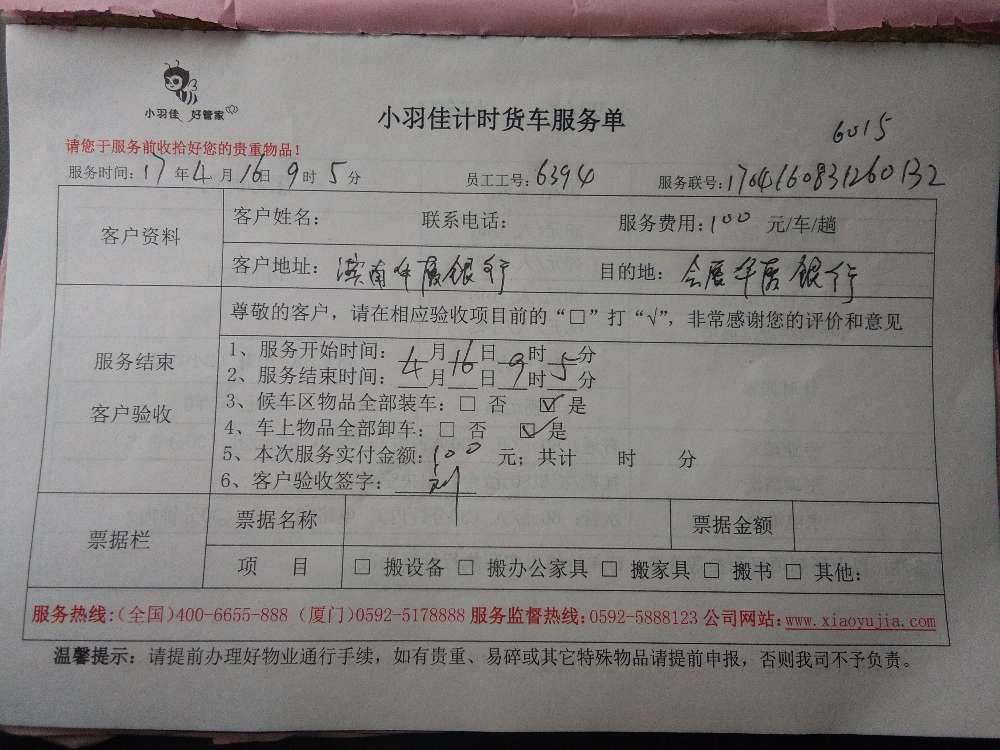 小羽佳 好管家
小羽佳计时货车服务单
6015
请您于服务前收拾好您的贵重物品！
服务时间：17 年 4 月 16 日 9 时 5 分 员工工号：6394 服务联号：1704160831260132
客户资料
客户姓名： 联系电话： 服务费用：100 元/车/趟
客户地址：滨南华厦银行 目的地：会展华厦银行
服务结束
客户验收
尊敬的客户，请在相应验收项目前的“□”打“√”，非常感谢您的评价和意见
1、服务开始时间：4月16日9时5分
2、服务结束时间：__月__日__时__分
3、候车区物品全部装车：□ 否 ☑ 是
4、车上物品全部卸车：□ 否 ☑ 是
5、本次服务实付金额：100 元；共计 时 分
6、客户验收签字：刘
票据栏
票据名称 票据金额
项 目 □ 搬设备 □ 搬办公家具 □ 搬家具 □ 搬书 □ 其他：
服务热线：(全国)400-6655-888 (厦门)0592-5178888 服务监督热线：0592-5888123 公司网站：www.xiaoyujia.com
温馨提示：请提前办理好物业通行手续，如有贵重、易碎或其它特殊物品请提前申报，否则我司不予负责。